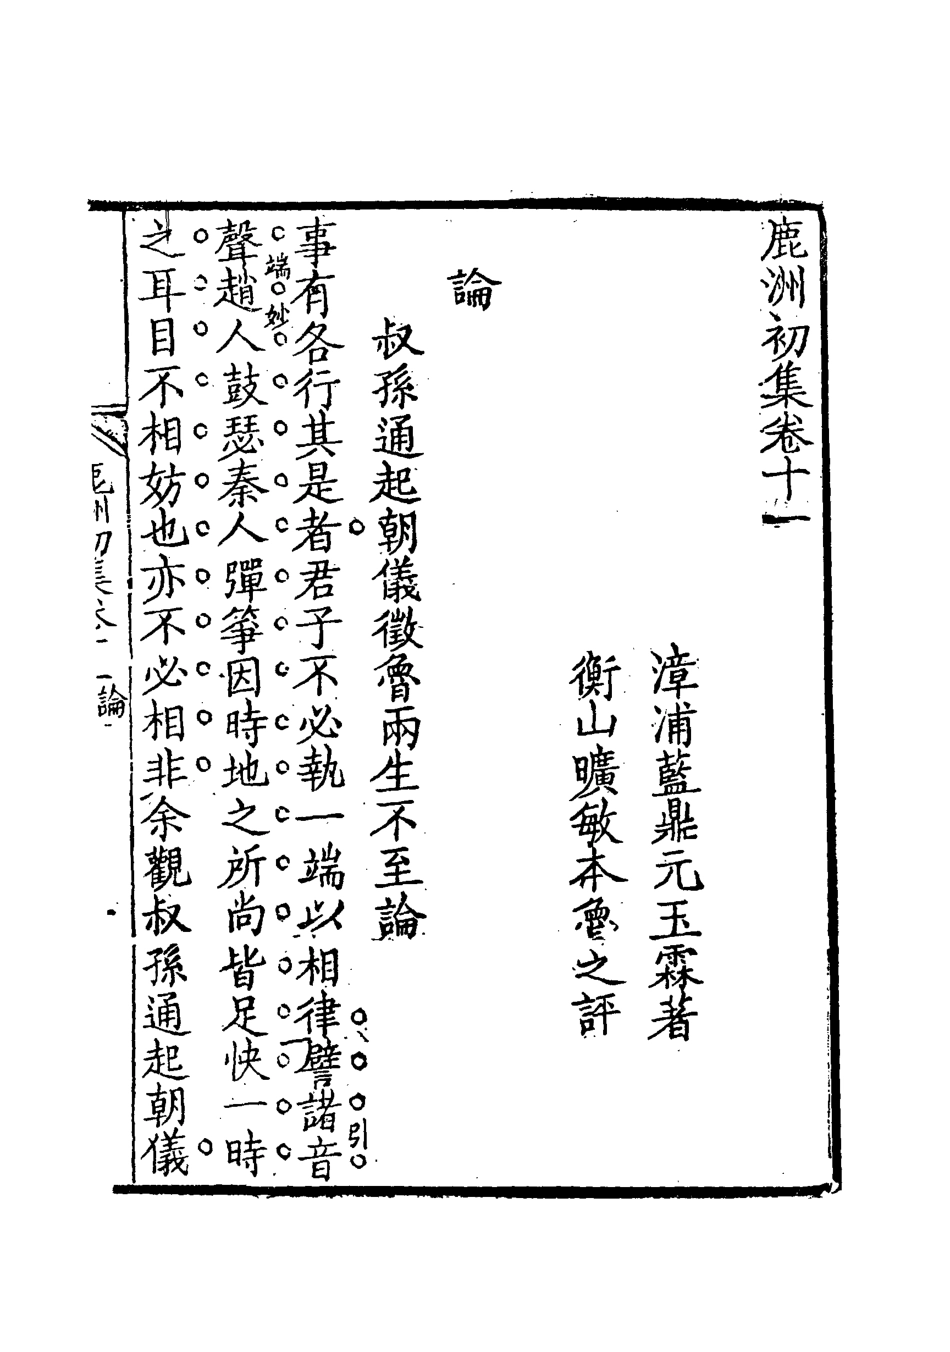 鹿洲初集卷十一
漳浦藍鼎元玉霖著
衡山曠敏本魯之評
論
叔孫通起朝儀徵魯兩生不至論
引
事有各行其是者君子不必執一端以相律譬諸音
端妙
聲趙人鼓瑟秦人彈箏因時地之所尚皆足快一時
之耳目不相妨也亦不必相非余觀叔孫通起朝儀
論